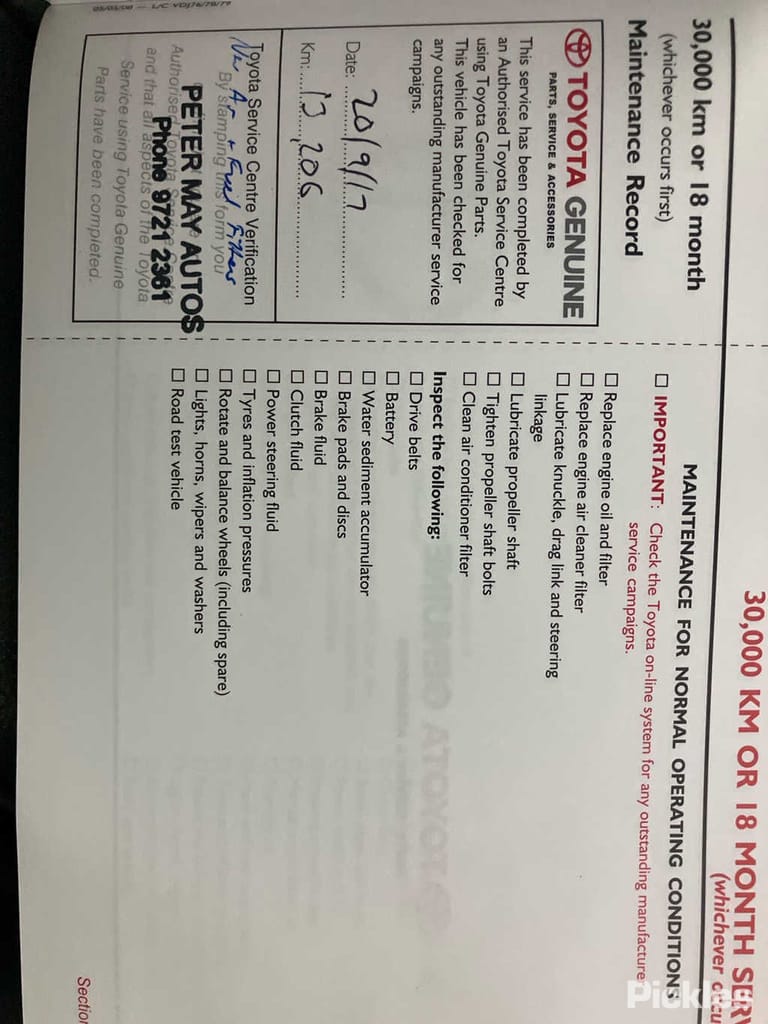 30,000 KM OR 18 MONTH SERV
(whichever occu
30,000 km or 18 month
(whichever occurs first)
Maintenance Record
TOYOTA GENUINE
PARTS, SERVICE & ACCESSORIES
This service has been completed by
an Authorised Toyota Service Centre
using Toyota Genuine Parts.
This vehicle has been checked for
any outstanding manufacturer service
campaigns.
Date: 20/9/17
Km: 13,206
Toyota Service Centre Verification
By stamping this form you
Air + Fuel Filters
Authorised Toyota Service Centre
and that all aspects of the Toyota
Service using Toyota Genuine
Parts have been completed.
PETER MAY AUTOS
Phone 9721 2361
05/03/08 — L/C VDJ76/78/79
MAINTENANCE FOR NORMAL OPERATING CONDITIONS
☐ IMPORTANT: Check the Toyota on-line system for any outstanding manufacture
service campaigns.
☐ Replace engine oil and filter
☐ Replace engine air cleaner filter
☐ Lubricate knuckle, drag link and steering
linkage
☐ Lubricate propeller shaft
☐ Tighten propeller shaft bolts
☐ Clean air conditioner filter
Inspect the following:
☐ Drive belts
☐ Battery
☐ Water sediment accumulator
☐ Brake pads and discs
☐ Brake fluid
☐ Clutch fluid
☐ Power steering fluid
☐ Tyres and inflation pressures
☐ Rotate and balance wheels (including spare)
☐ Lights, horns, wipers and washers
☐ Road test vehicle
Section
Pickles